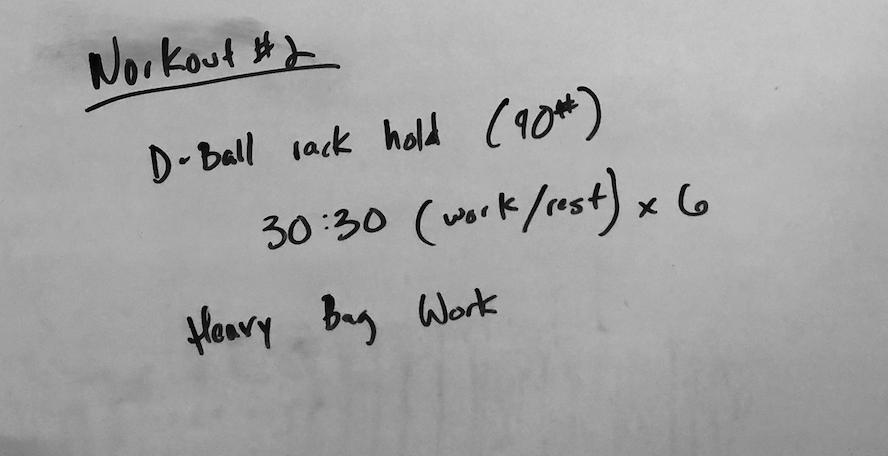 Workout #2
D-Ball rack hold (90#)
30:30 (work/rest) x 6
Heavy Bag Work